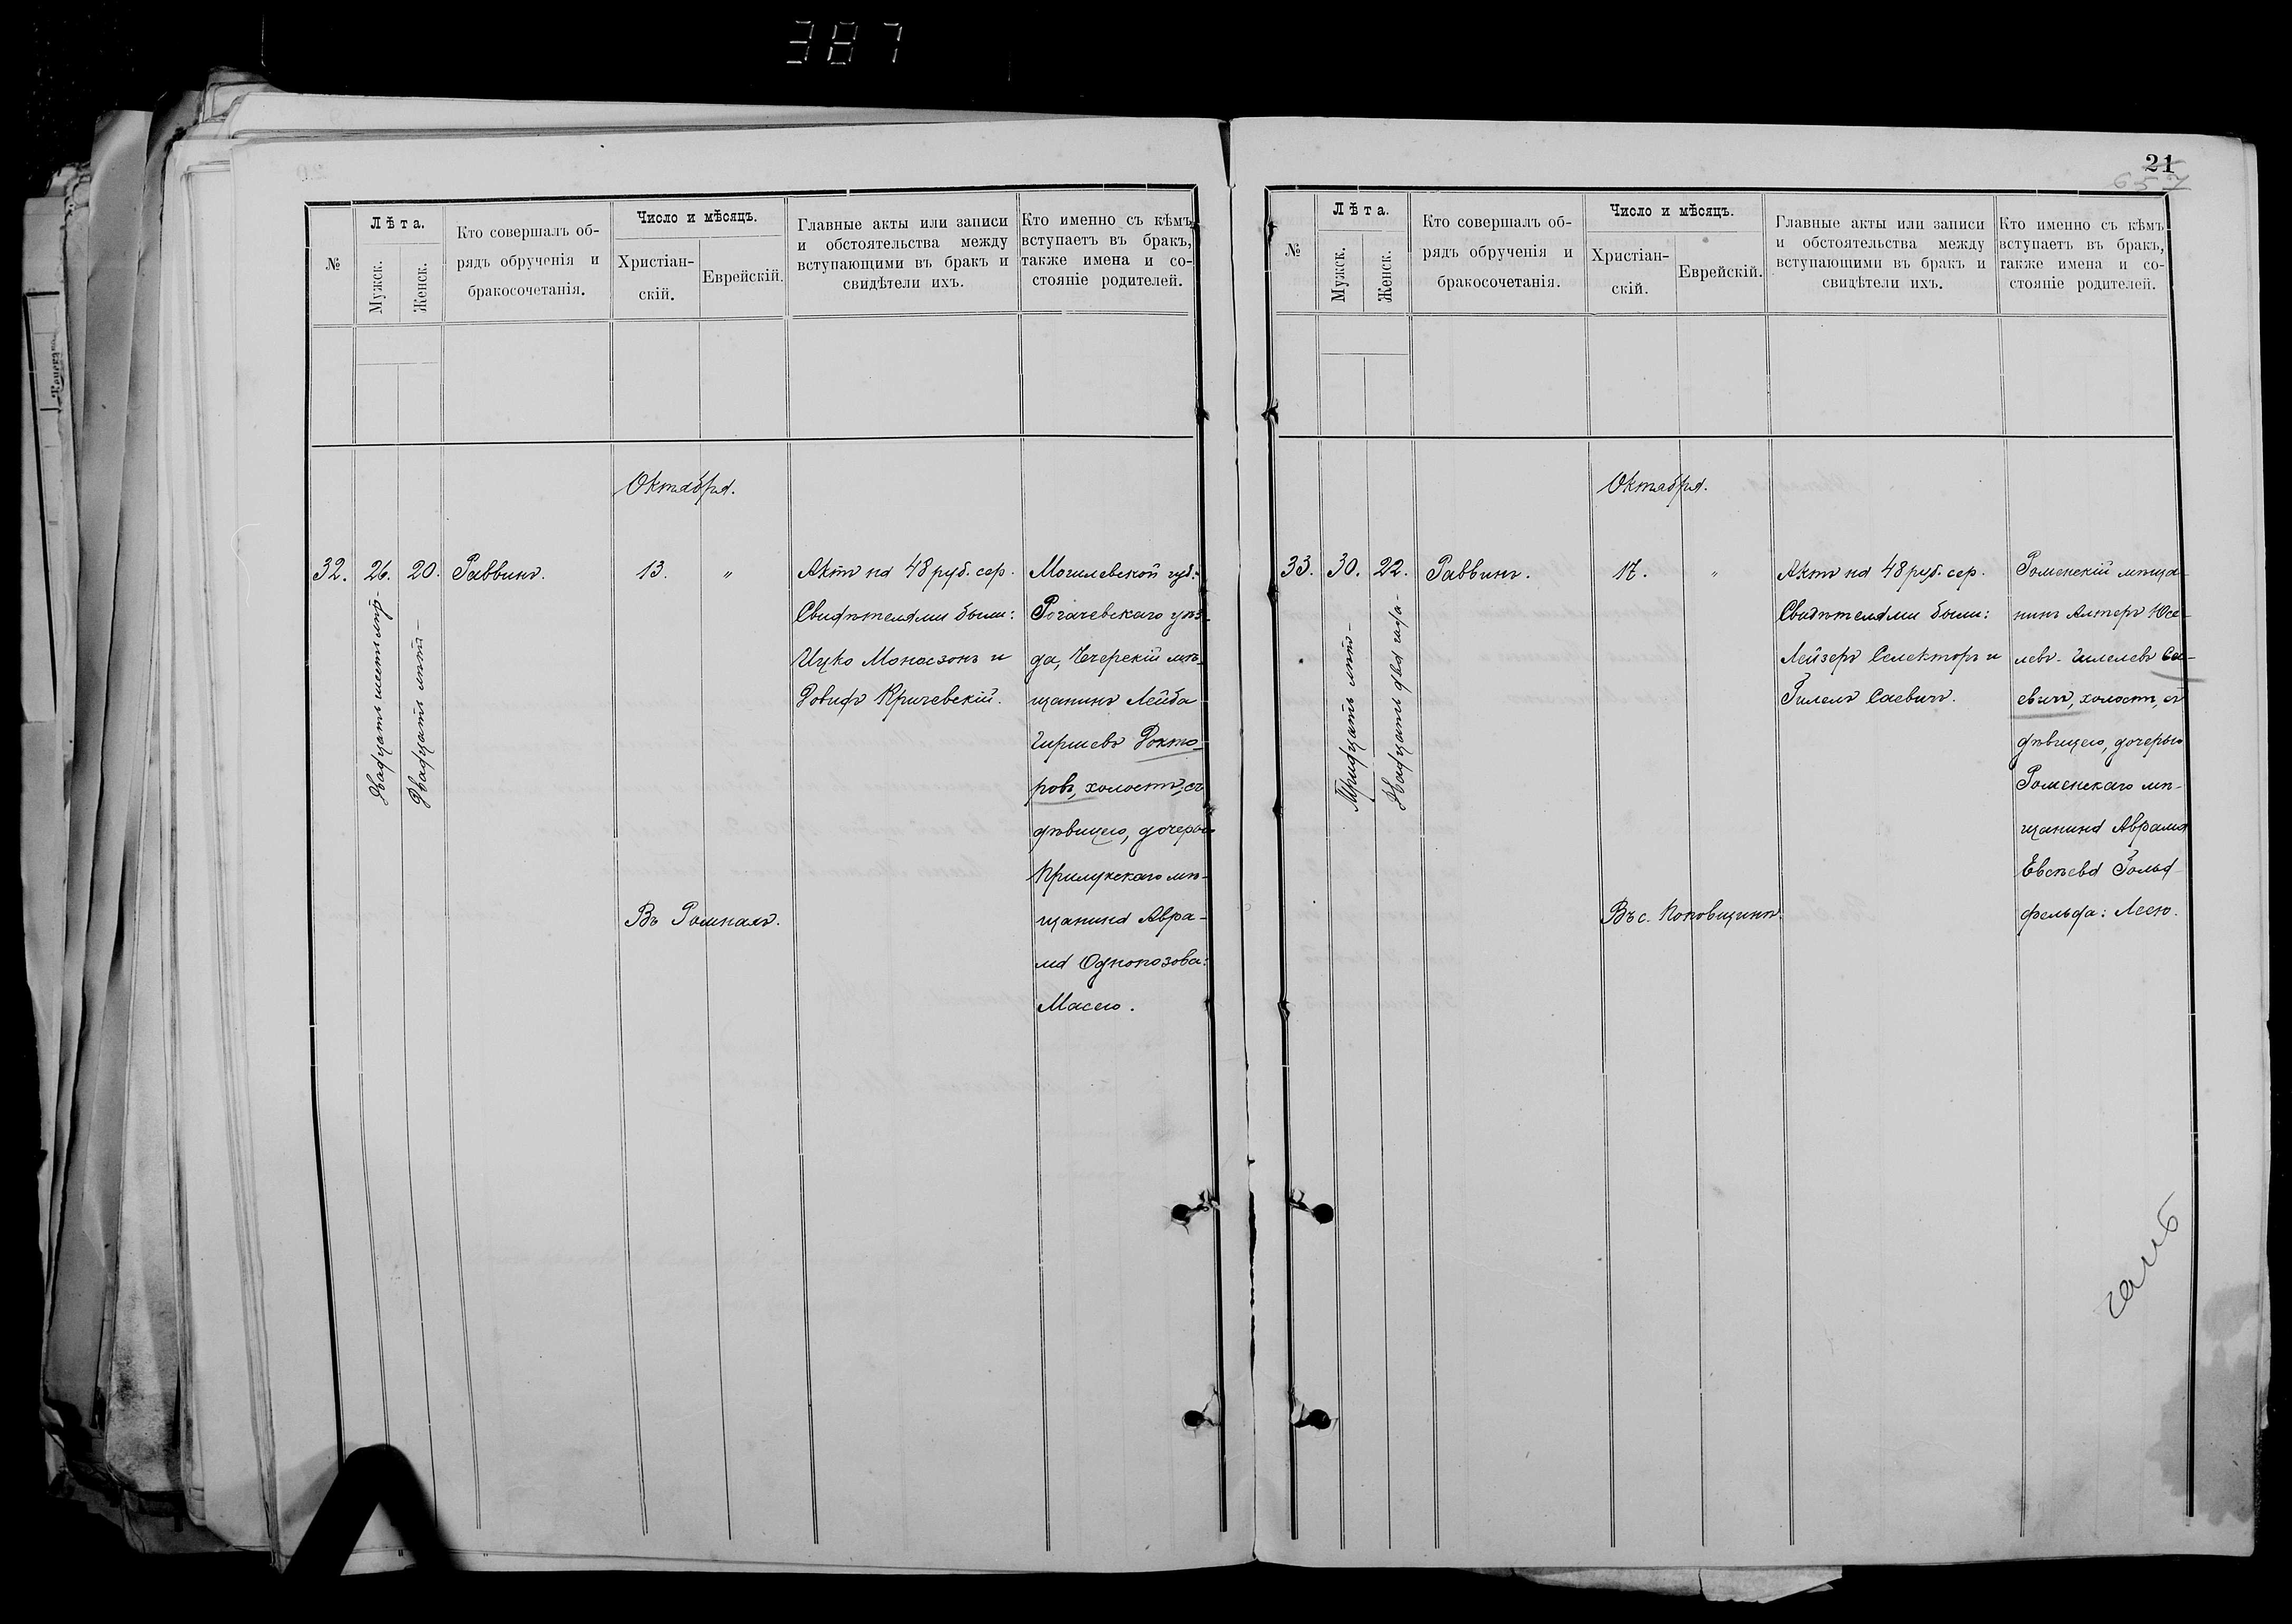 387
№
Лѣта.
Мужск.
Женск.
Кто совершалъ об-
рядъ обрученія и
бракосочетанія.
Число и мѣсяцъ.
Христіан-
скій.
Еврейскій.
Главные акты или записи
и обстоятельства между
вступающими въ бракъ и
свидѣтели ихъ.
Кто именно съ кѣмъ
вступаетъ въ бракъ,
также имена и со-
стояніе родителей.
Октября.
32.
26.
Двадцать шесть лѣт-
20.
Двадцать лѣтъ-
Раввинъ.
13.
"
Въ Ромнахъ.
Актъ на 48 руб. сер.
Свидѣтелями были:
Ицко Монасзонъ и
Довидъ Кричевскій.
Могилевской губ.
Рогачевскаго уѣз-
да, Чечерскій мѣ-
щанинъ Лейба
Гиршевъ Докто-
ровъ, холостъ, съ
дѣвицею, дочерью
Прилукскаго мѣ-
щанина Авра-
ма Однопозова:
Масею.
21
657
№
Лѣта.
Мужск.
Женск.
Кто совершалъ об-
рядъ обрученія и
бракосочетанія.
Число и мѣсяцъ.
Христіан-
скій.
Еврейскій.
Главные акты или записи
и обстоятельства между
вступающими въ бракъ и
свидѣтели ихъ.
Кто именно съ кѣмъ
вступаетъ въ бракъ,
также имена и со-
стояніе родителей.
Октября.
33.
30.
Тридцать лѣтъ-
22.
Двадцать два года-
Раввинъ.
17.
"
Въ с. Коновщинѣ.
Актъ на 48 руб. сер.
Свидѣтелями были:
Лейзеръ Селекторъ и
Гилель Саевичъ.
Роменскій мѣща-
нинъ Алтеръ Юсе-
левъ-Гилелевъ Са-
евичъ, холостъ, съ
дѣвицею, дочерью
Роменскаго мѣ-
щанина Аврама
Евсѣева Гольд-
фельда: Лесю.